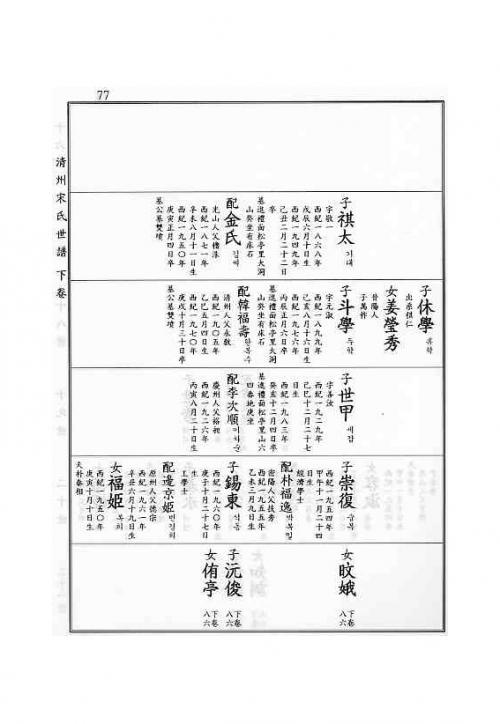 77
淸州宋氏世譜 下卷
子祺太 기태
字敬一
西紀一八六八年
戊辰六月十日生
西紀一九四九年
己丑二月二十二日
卒
墓進禮面松亭里大洞
山癸坐有床石
配金氏 김씨
光山人父
西紀一八七一年
辛未八月十一日生
西紀一九五〇年
庚寅正月四日卒
墓公墓雙墳
子休學 휴학
出系祺仁
女姜瑩秀
晉陽人
子萬祚
子斗學 두학
字元淑
西紀一八九九年
己亥八月十六日生
西紀一九七六年
丙辰正月六日卒
墓進禮面松亭里大洞
山癸坐有床石
配韓福壽 한복수
淸州人父
西紀一九〇五年
乙巳五月四日生
西紀一九七〇年
庚戌十月三十日卒
墓公墓雙墳
子世甲 세갑
字善汝
西紀一九二九年
己巳十二月二十七
日生
西紀一九八三年
癸亥十二月四日卒
墓進禮面松亭里山六
四番地庚坐
配李次順 이차순
慶州人父裕相
西紀一九二六年
丙寅八月二十日生
子崇復 숭복
西紀一九五四年
甲午十一月二十四
日生
經濟學士
配朴福逸 박복일
密陽人父技秀
西紀一九五五年
乙未三月九日生
子錫東 석동
西紀一九六〇年
庚子十月二十七日
生
工學士
配邊京姬 변경희
原州人父德宗
西紀一九六一年
辛丑六月十九日生
女福姬 복희
西紀一九五〇年
庚寅十月十日生
夫朴春相
女旼娥 下卷 八六
子沅俊 下卷 八六
女侑亭 下卷 八六